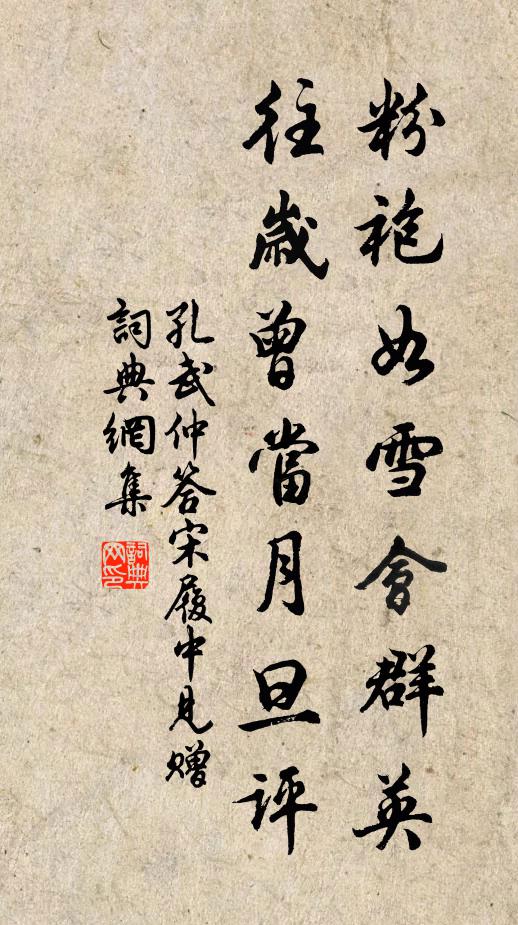 粉袍如雪會群英
往歲曾當月旦評
孔武仲答宋履中見贈
詞典網集
詞典网印